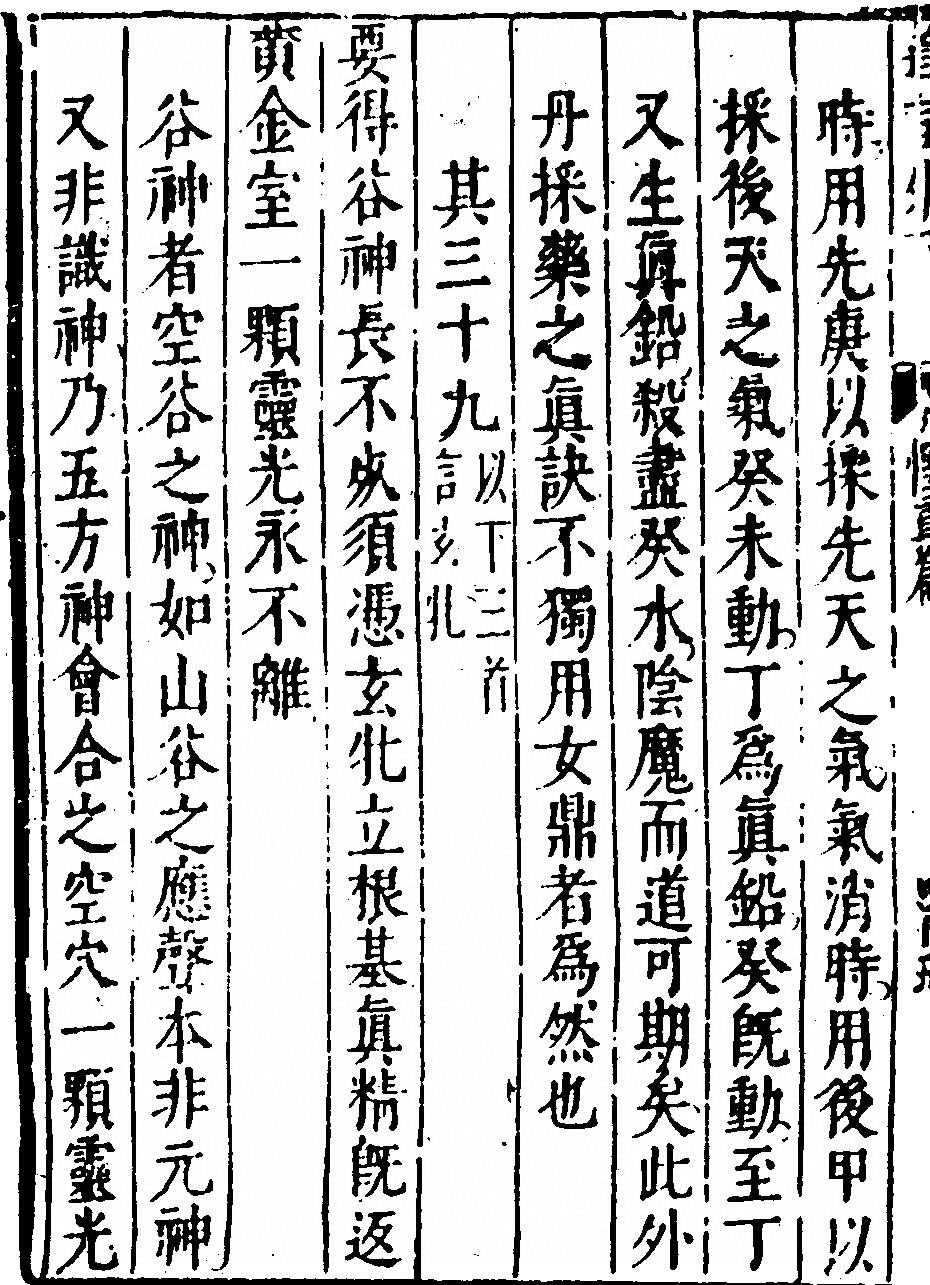 時用先庚以採先天之氣氣消時用後甲以
採後天之氣癸未動丁爲眞鉛癸旣動至丁
又生眞鉛殺盡癸水陰魔而道可期矣此外
丹採藥之眞訣不獨用女鼎者爲然也
其三十九以下三首言玄牝
要得谷神長不死須憑玄牝立根基眞精旣返
黃金室一顆靈光永不離
谷神者空谷之神如山谷之應聲本非元神
又非識神乃五方神會合之空穴一顆靈光